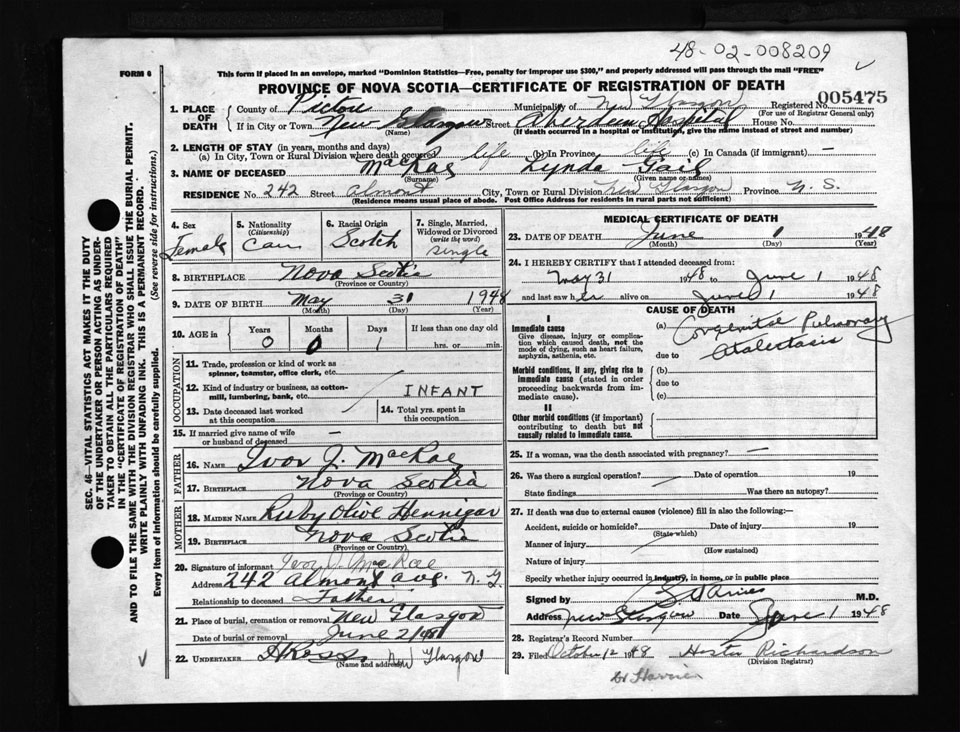 48-02-008209
FORM 6
This form if placed in an envelope, marked "Dominion Statistics—Free, penalty for improper use $300," and properly addressed will pass through the mail "FREE"
PROVINCE OF NOVA SCOTIA—CERTIFICATE OF REGISTRATION OF DEATH
005475
1. PLACE OF DEATH
County of Pictou Municipality of New Glasgow Registered No.
(For use of Registrar General only)
If in City or Town New Glasgow Street Aberdeen Hospital House No.
(Name) (If death occurred in a hospital or institution, give the name instead of street and number)
2. LENGTH OF STAY (in years, months and days)
(a) In City, Town or Rural Division where death occurred life (b) In Province life (c) In Canada (if immigrant) —
3. NAME OF DECEASED MacRae Lynda Gail
(Surname) (Given name or names)
RESIDENCE No. 242 Street Almont City, Town or Rural Division New Glasgow Province N. S.
(Residence means usual place of abode. Post Office Address for residents in rural parts not sufficient)
4. Sex Female
5. Nationality (Citizenship) Can
6. Racial Origin Scotch
7. Single, Married, Widowed or Divorced (write the word) single
8. BIRTHPLACE Nova Scotia
(Province or Country)
9. DATE OF BIRTH May 31 1948
(Month) (Day) (Year)
10. AGE in Years Months Days If less than one day old
0 0 1 hrs. or min.
OCCUPATION
11. Trade, profession or kind of work as spinner, teamster, office clerk, etc.
12. Kind of industry or business, as cotton-mill, lumbering, bank, etc. INFANT
13. Date deceased last worked at this occupation
14. Total yrs. spent in this occupation
15. If married give name of wife or husband of deceased —
FATHER
16. NAME Ivor J. MacRae
17. BIRTHPLACE Nova Scotia
(Province or Country)
MOTHER
18. MAIDEN NAME Ruby Olive Hennigar
19. BIRTHPLACE Nova Scotia
(Province or Country)
20. Signature of informant Ivor J. MacRae
Address 242 Almont Ave. N. G.
Relationship to deceased Father
21. Place of burial, cremation or removal New Glasgow
Date of burial or removal June 2/48
22. UNDERTAKER New Glasgow
(Name and address)
MEDICAL CERTIFICATE OF DEATH
23. DATE OF DEATH June 1 1948
(Month) (Day) (Year)
24. I HEREBY CERTIFY that I attended deceased from
May 31 1948 to June 1 1948
and last saw her alive on June 1 1948
CAUSE OF DEATH
I
Immediate cause
Give disease, injury or complication which caused death, not the mode of dying, such as heart failure, asphyxia, asthenia, etc.
(a) Congenital Pulmonary
due to Atalectasis
Morbid conditions, if any, giving rise to immediate cause (stated in order proceeding backwards from immediate cause).
(b)
due to
(c)
II
Other morbid conditions (if important) contributing to death but not causally related to immediate cause.
25. If a woman, was the death associated with pregnancy? —
26. Was there a surgical operation? — Date of operation 19
State findings Was there an autopsy?
27. If death was due to external causes (violence) fill in also the following:—
Accident, suicide or homicide? Date of injury 19
(State which)
Manner of injury
(How sustained)
Nature of injury
Specify whether injury occurred in industry, in home, or in public place
Signed by M.D.
Address New Glasgow Date June 1 1948
28. Registrar's Record Number
29. Filed October 12 1948 Hester Richardson
(Division Registrar)
Dr Harries
SEC. 46—VITAL STATISTICS ACT MAKES IT THE DUTY
OF THE UNDERTAKER OR PERSON ACTING AS UNDER-
TAKER TO OBTAIN ALL THE PARTICULARS REQUIRED
IN THE "CERTIFICATE OF REGISTRATION OF DEATH"
AND TO FILE THE SAME WITH THE DIVISION REGISTRAR WHO SHALL ISSUE THE BURIAL PERMIT.
WRITE PLAINLY WITH UNFADING INK. THIS IS A PERMANENT RECORD.
Every item of information should be carefully supplied. (See reverse side for instructions.)